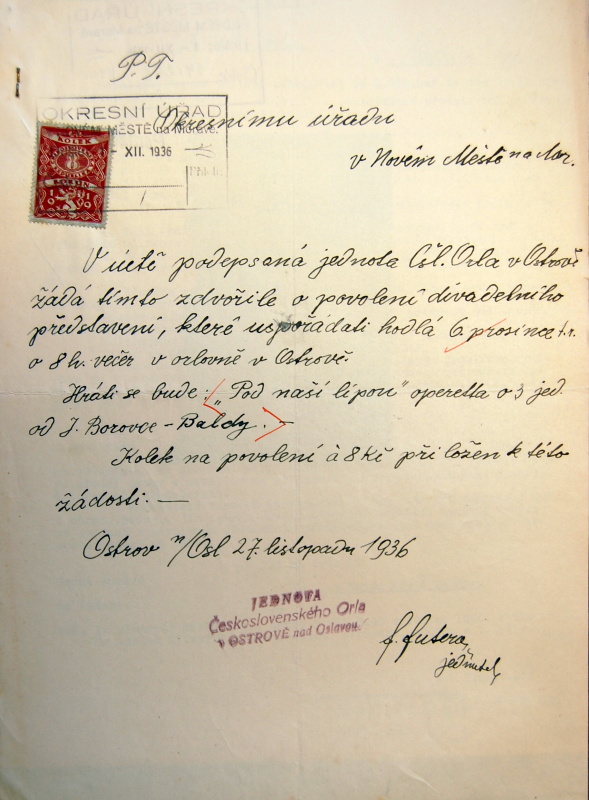 P. T.
OKRESNÍ ÚŘAD
Okresnímu úřadu
MĚSTĚ na Moravě
KOLEK
XII. 1936
8
v Novém Městě na Mor.
V úctě podepsaná jednota Čsl. Orla v Ostrově
žádá tímto zdvořile o povolení divadelního
představení, které uspořádati hodlá 6 prosince t.r.
o 8 h. večer v orlovně v Ostrově.
Hráti se bude: "Pod naší lípou" operetta o 3 jed.
od J. Borovce - Baldy. -
Kolek na povolení à 8 Kč přiložen k této
žádosti. —
Ostrov n/Osl 27. listopadu 1936
JEDNOTA
Československého Orla
v OSTROVĚ nad Oslavou.
f. Futera,
jednatel,